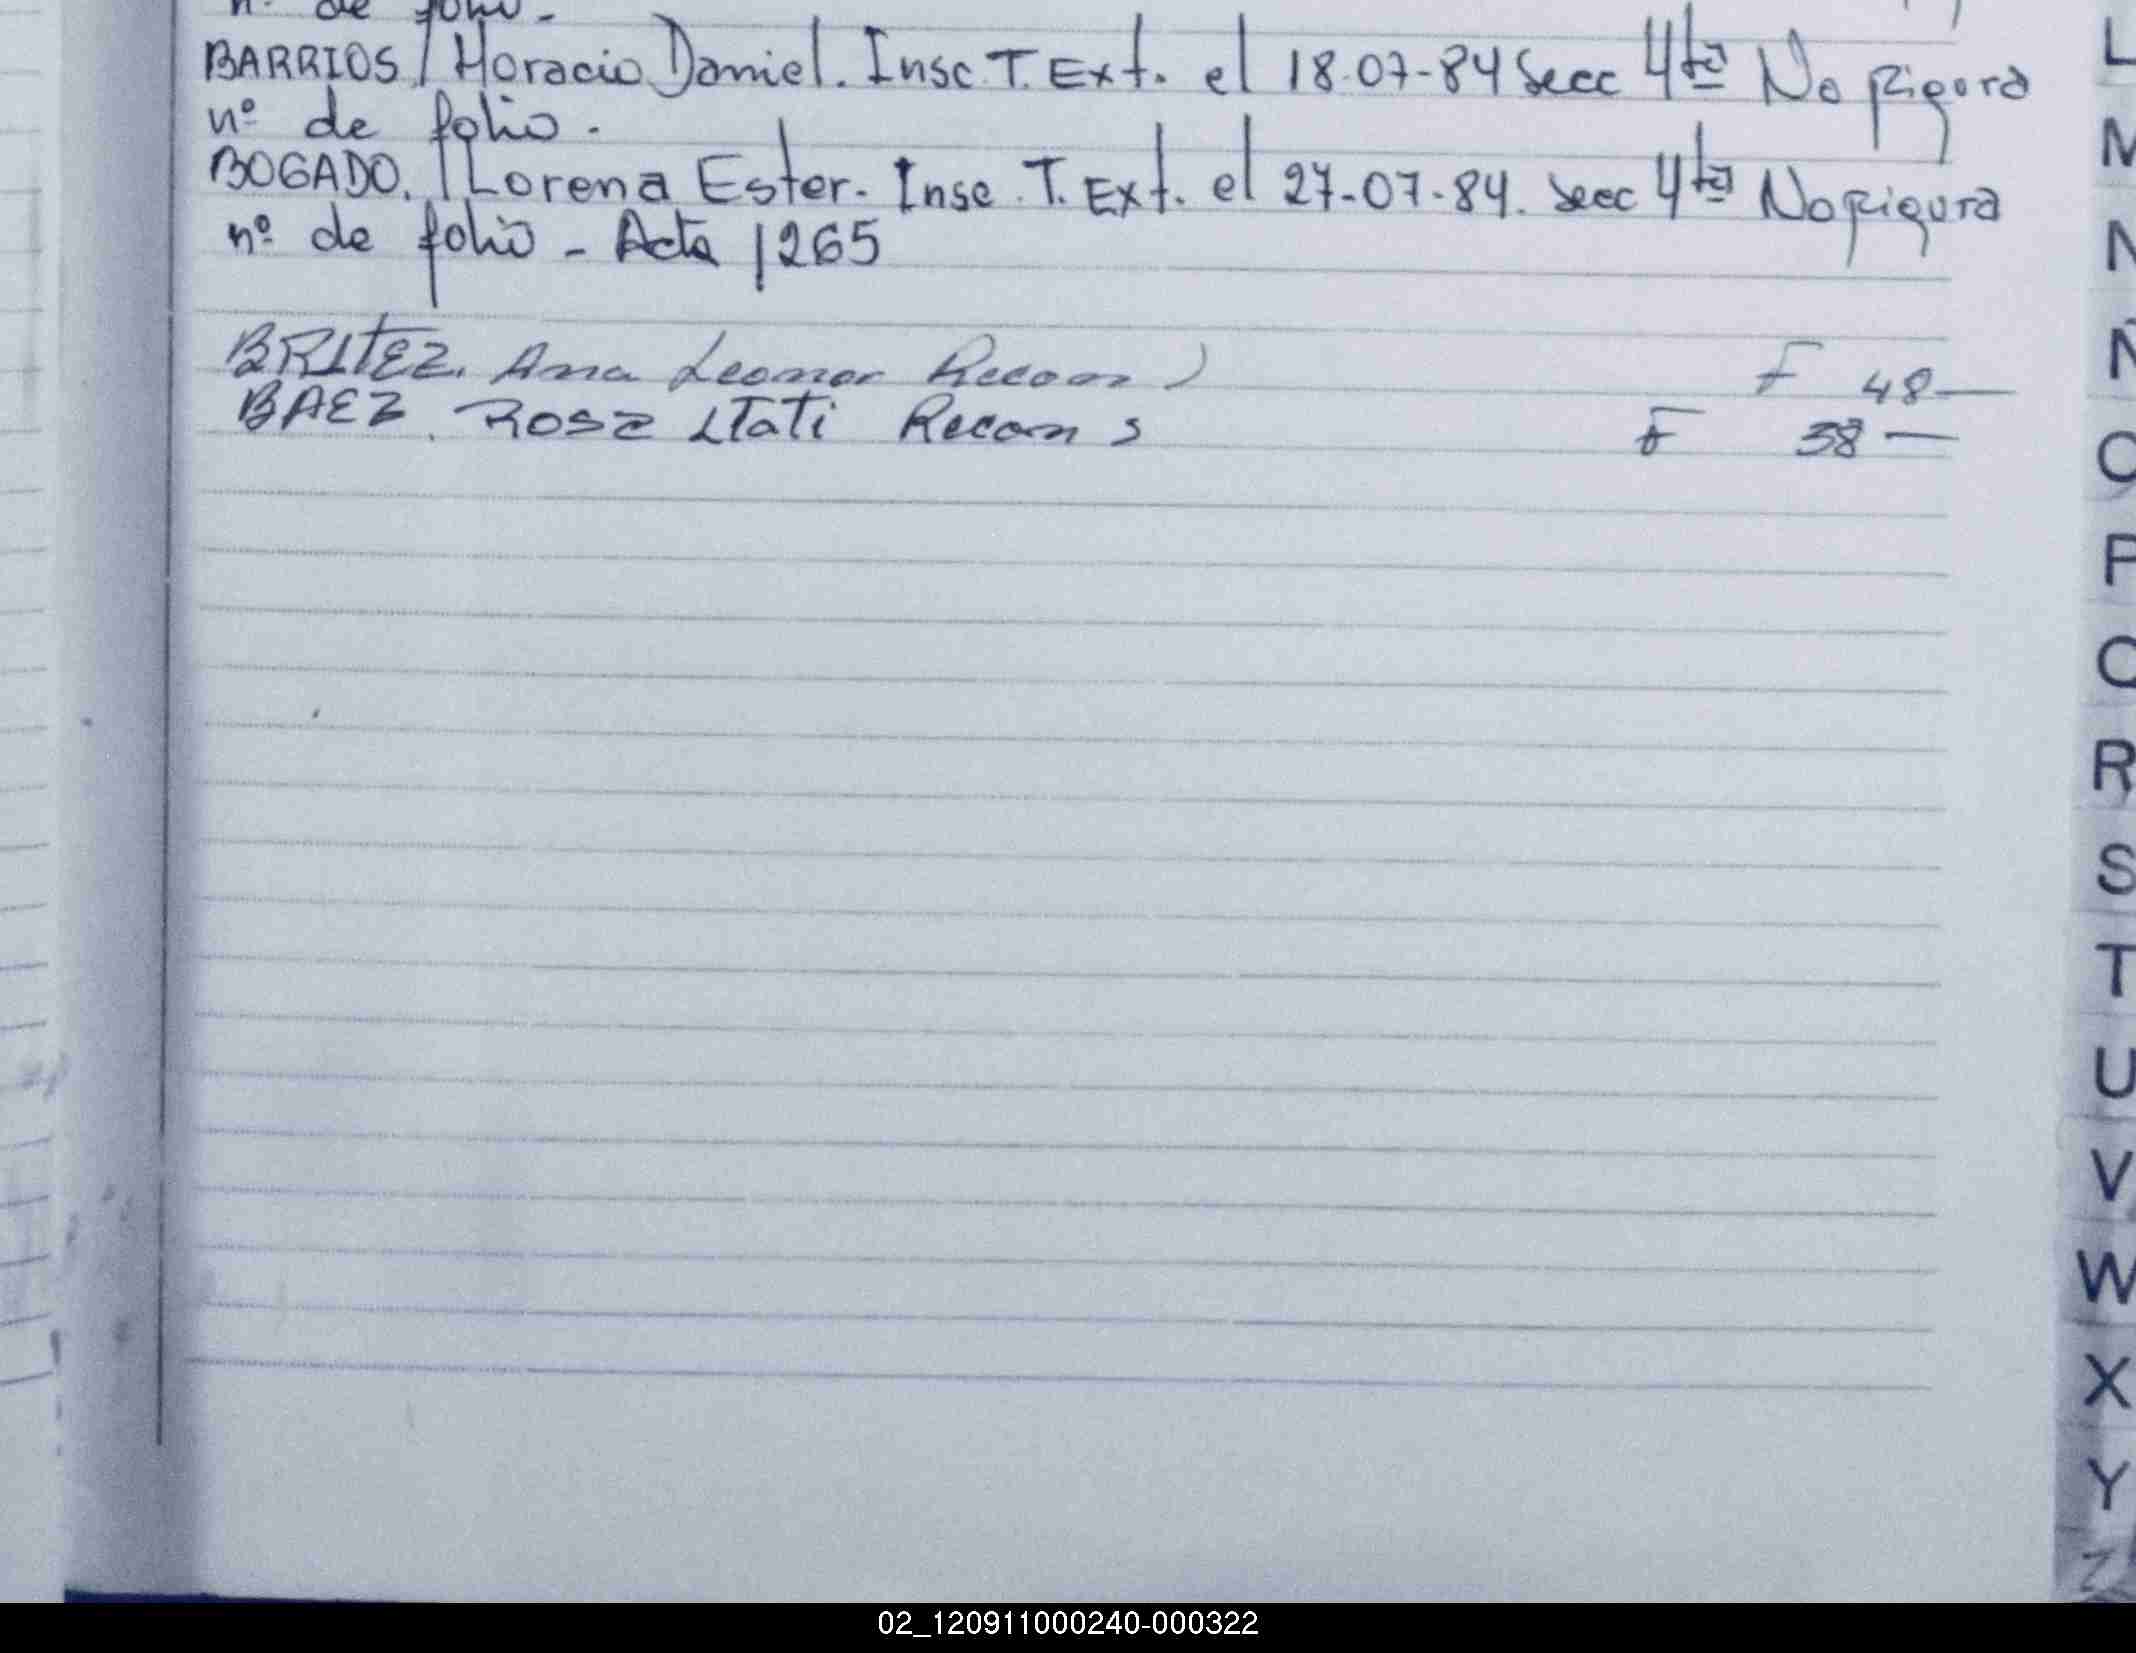 nº de folio -
BARRIOS / Horacio Daniel. Insc. T. Ext. el 18-07-84 Secc 4ta No Figura
nº de folio .
BOGADO. / Lorena Ester. Insc. T. Ext. el 27-07-84. Secc 4ta No Figura
nº de folio - Acta 1265
BRITEZ. Ana Leonor Recon ) F 48 —
BAEZ. Rosa Itati Recon s F 38 —
L
M
N
Ñ
O
P
Q
R
S
T
U
V
W
X
Y
Z
02_120911000240-000322